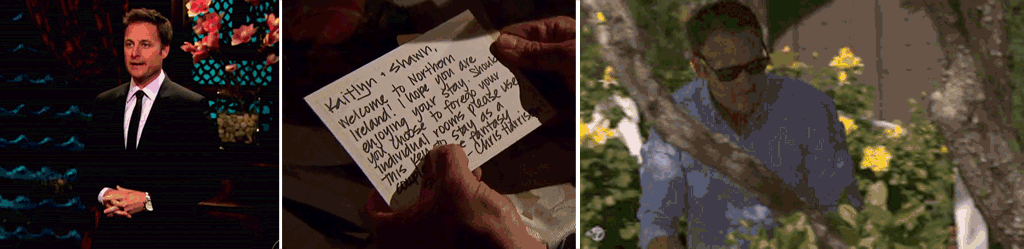 Kaitlyn + Shawn,
Welcome to Northern
Ireland! I hope you are
enjoying your stay. Should
you choose to forego your
individual rooms please use
this key to stay as a
couple fantasy
Chris Harrison